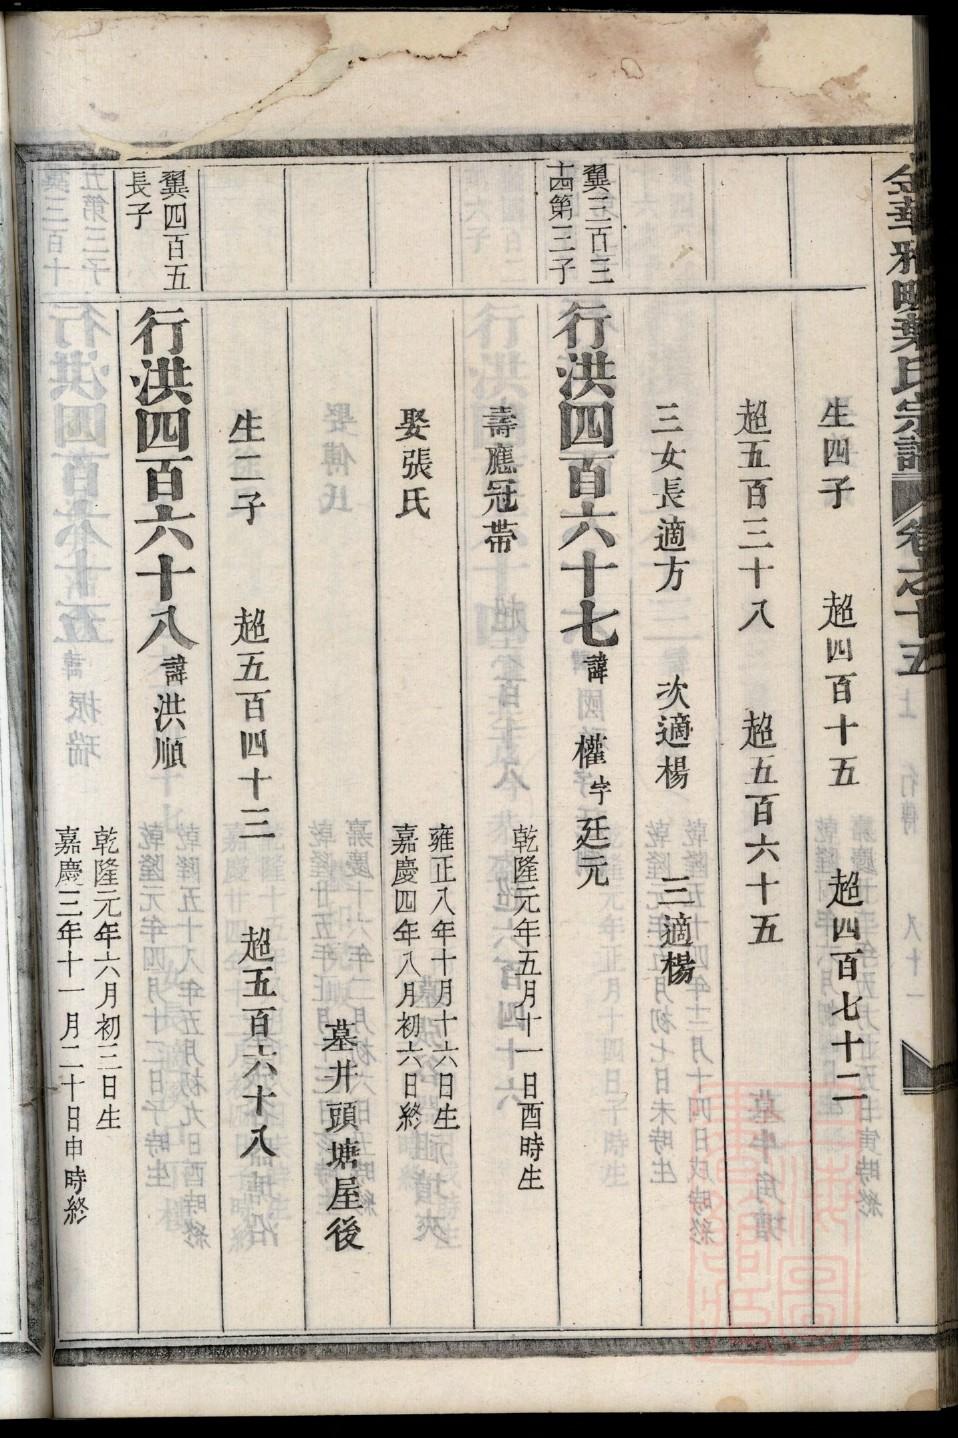 金華雅畈葉氏宗譜 卷之十五
生四子 超四百十五 超四百七十二
超五百三十八 超五百六十五
三女長適方 次適楊 三適楊
翼三百三
十四第三子
行洪四百六十七 諱權字廷元
壽應冠帶 乾隆元年五月十一日酉時生
娶張氏 雍正八年十月十六日生
嘉慶四年八月初六日終
墓井頭塘屋後
生二子 超五百四十三 超五百六十八
翼四百五
長子
行洪四百六十八 諱洪順
乾隆元年六月初三日生
嘉慶三年十一月二十日申時終